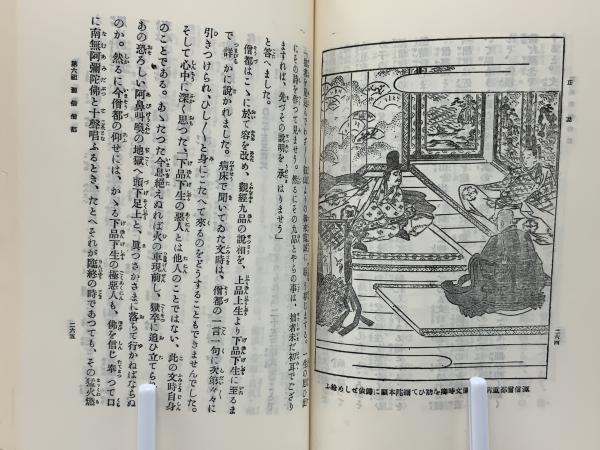 二六四
源信僧都重病
文時卿を訪ひて彌陀本願に歸依せしめ給ふ
ますれば、先づその説明を承はりませう」
と答へました。
僧都はこゝに於て容を改め、觀經九品の説相を、上品上生より下品下生に至るま
で詳かに説かれました。病床で聞いてゐた文時は、僧都の一言一句に次第々々に
引きつけられ、ひし〳〵と身にこたへて來るのをどうすることもできませんでした。
そして心中に深く思つた、『下品下生の惡人とは他人のことではない、此の文時自身
のことである。あゝたつた今息絶えぬれば火の車現前し、獄卒に追ひ立てら
あの恐ろしい阿鼻叫喚の地獄へ頭下足上と、眞つさかさまに落ちて行かねばならぬ
のか。然るに今僧都の仰せには、かゝる下品下生の極惡人も、佛を信じ奉つて口
に南無阿彌陀佛と十聲唱ふるとき、たとへそれが臨終の時であつても、その猛火燃
第六祖　源信僧都
二六五